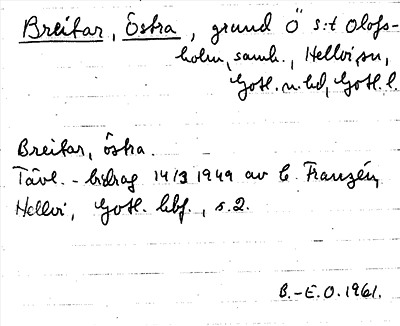 Breitar, Östra, grund Ö s:t Olofs-
holm, samh., Hellvi sn,
Gotl. n. hd, Gotl. l.
Breitar, östra.
Tävl.-bidrag 14/3 1949 av C. Franzén,
Hellvi, Gotl. bbf., s. 2.
B.-E.O. 1961.